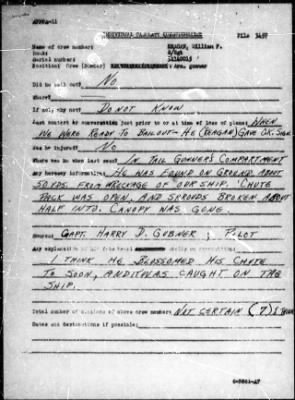 INDIVIDUAL CASUALTY QUESTIONNAIRE
Name of crew member: REAGAN, William F.
Rank: S/Sgt
Serial number:
Position: Crew (Bomber) Arm. gunner
Did he bail out? NO
Where?
If not, why not? DO NOT KNOW
Last contact or conversation just prior to or at time of loss of plane: WHEN
WE WERE READY TO BAILOUT - HE (REAGAN) GAVE O.K. SIGN
Was he injured? NO
Where was he when last seen? IN TAIL GUNNER'S COMPARTMENT
Any hearsay information: HE WAS FOUND ON GROUND ABOUT
50 YDS. FROM WRECKAGE OF OUR SHIP. CHUTE
PACK WAS OPEN, AND SHROUDS BROKEN ABOUT
HALF INTO. CANOPY WAS GONE.
Source: CAPT. HARRY D. GUBNER ; PILOT
Any explanation of his fate
I THINK HE BLOSSOMED HIS CHUTE
TO SOON, AND IT WAS CAUGHT ON THE
SHIP.
Total number of missions of above crew member: NOT CERTAIN (7)
Dates and destinations if possible: